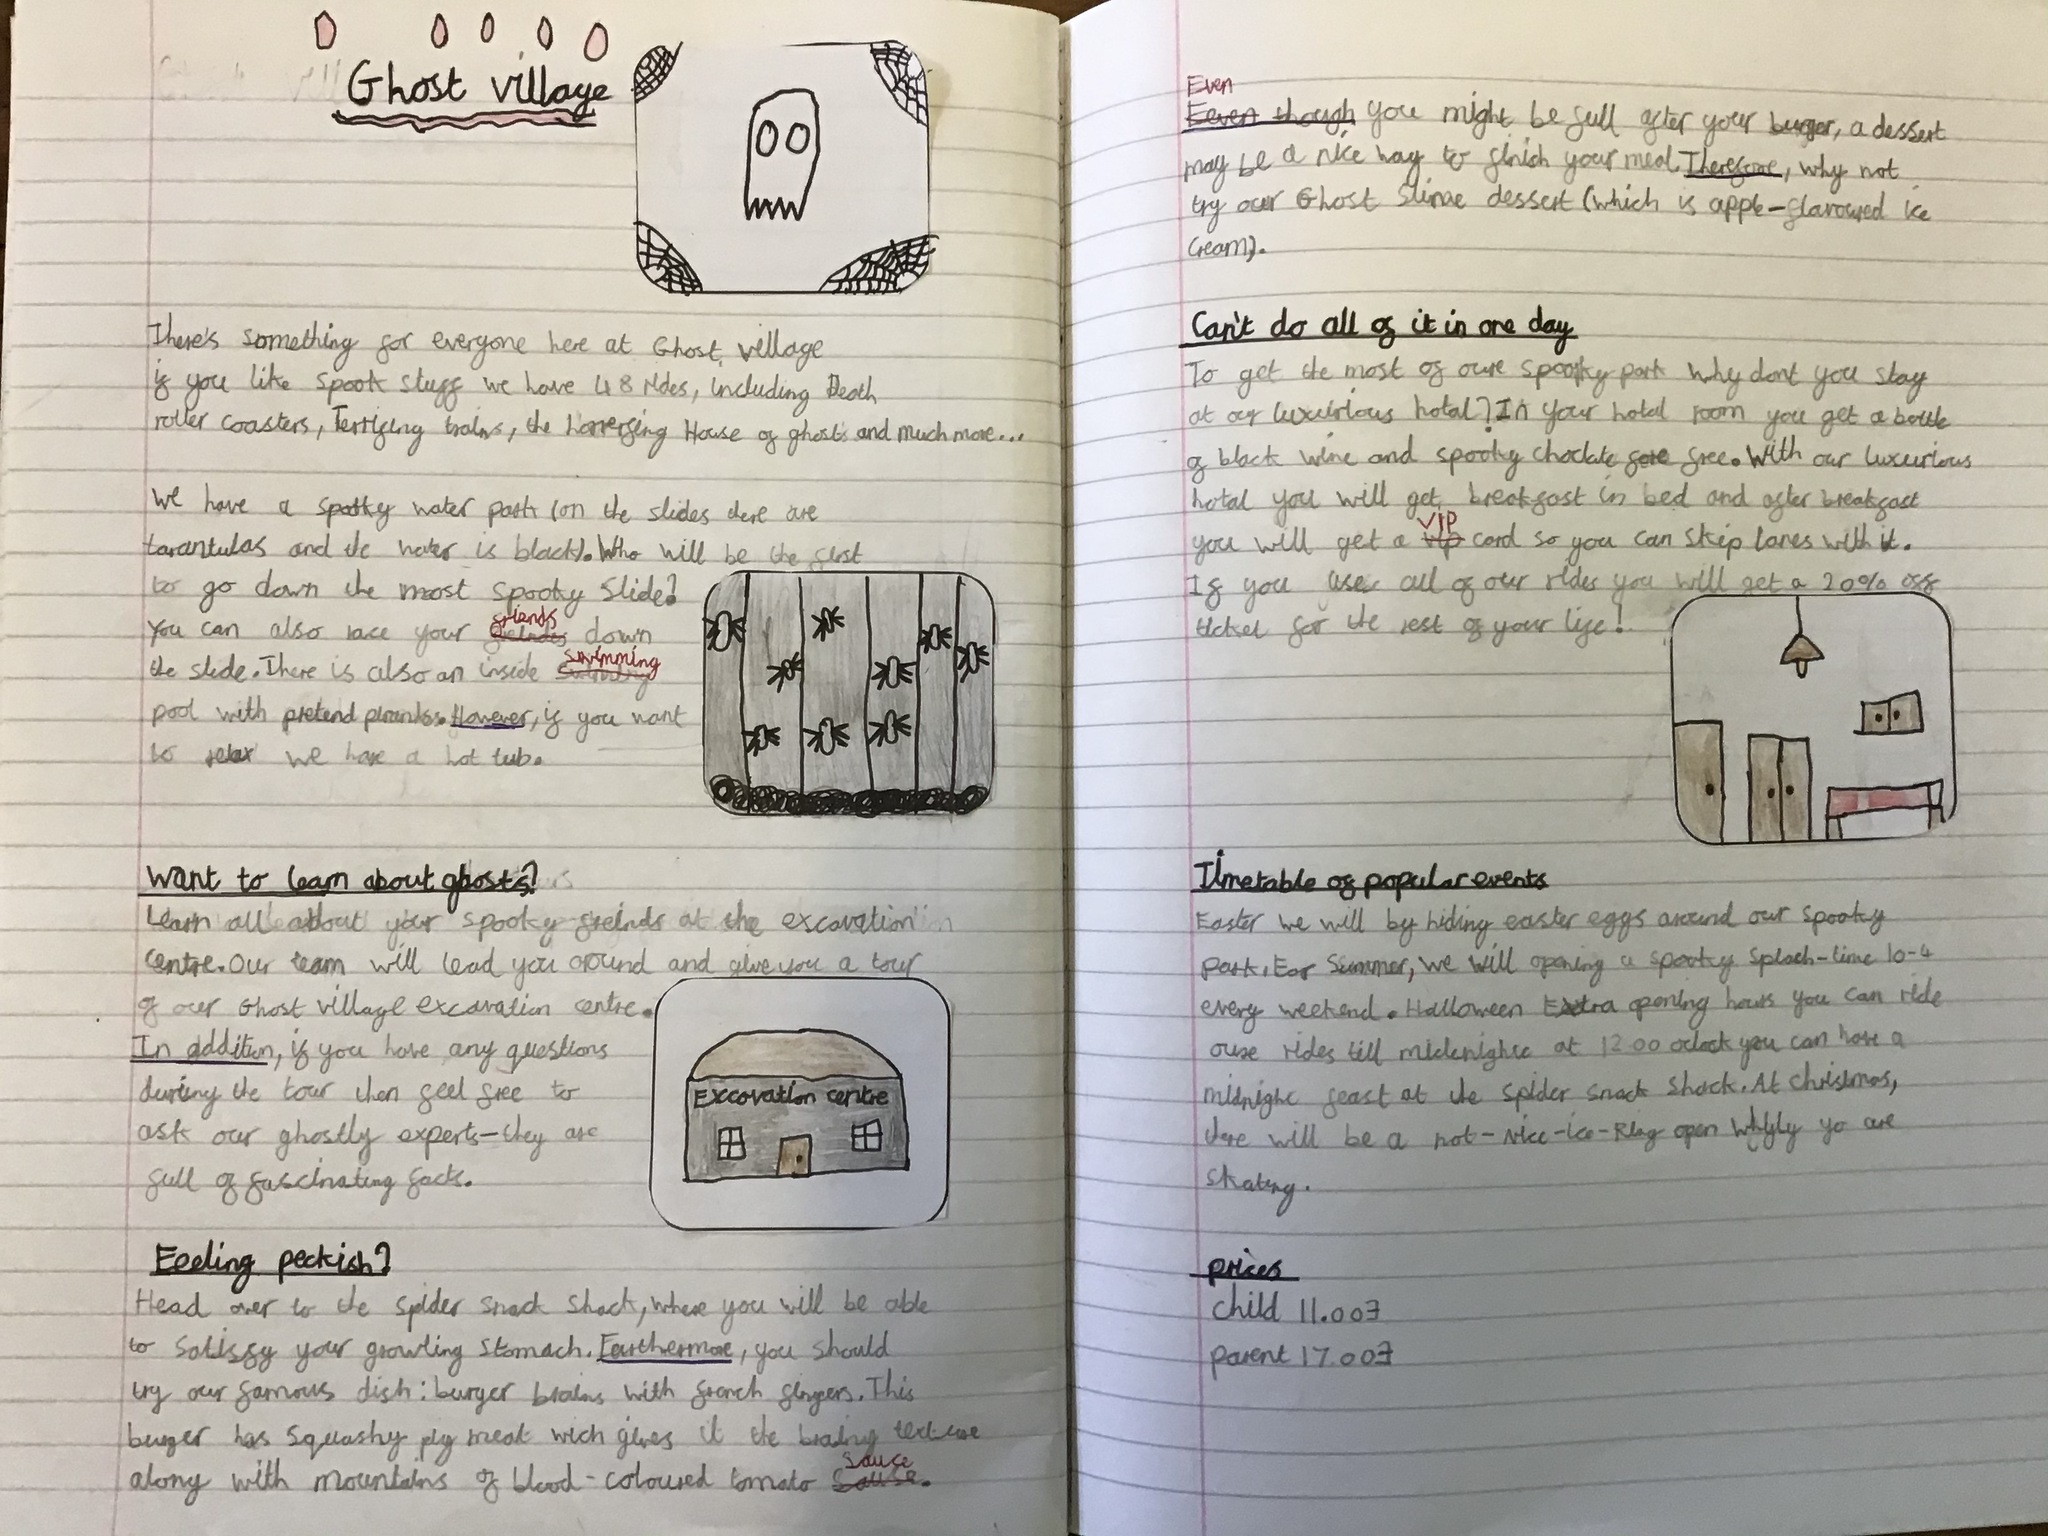 Ghost village
There's something for everyone here at Ghost village
if you like spook stuff we have 48 rides, including Death
roller coasters, Terrifing trains, the horrerfing House of ghosts and much more...
We have a spooky water park (on the slides there are
tarantulas and the water is black). Who will be the first
to go down the most spooky slide?
friends
You can also race your down
swimming
the slide. There is also an inside
pool with pretend piranhas. However, if you want
to relax we have a hot tub.
Want to learn about ghosts?
Learn all about your spooky-freinds at the excavation
centre. Our team will lead you around and give you a tour
of our Ghost village excavation centre.
In addition, if you have any questions
during the tour then feel free to
ask our ghostly experts-they are
full of fascinating facts.
Excavation centre
Feeling peckish?
Head over to the spider snack shack, where you will be able
to satisfy your growling stomach. Furthermore, you should
try our famous dish: burger brains with french fingers. This
burger has squashy pig meat wich gives it the brainy texture
sauce
along with mountains of blood-coloured tomato sause.
Even
Eeven though you might be full after your burger, a dessert
may be a nice way to finish your meal. Therefore, why not
try our Ghost Slime dessert (which is apple-flavoured ice
cream).
Can't do all of it in one day
To get the most of oure spooky park why dont you stay
at our luxuirious hotal? In your hotal room you get a bottle
of black wine and spooky choclate free. With our luxuirious
hotal you will get breakfast in bed and after breakfast
VIP
you will get a vip card so you can skip lanes with it.
If you use all of our rides you will get a 20% off
ticket for the rest of your life!
Timetable of popular events
Easter we will by hiding easter eggs around our spooky
park. For Summer, we will opening a spooky splash-time 10-4
every weekend. Halloween Extra opening hours you can ride
oure rides till midnight at 12.00 oclock you can have a
midnight feast at the spider snack shack. At christmas,
there will be a not-nice-ice-Ring open yo are
skating.
prices
child 11.00£
parent 17.00£